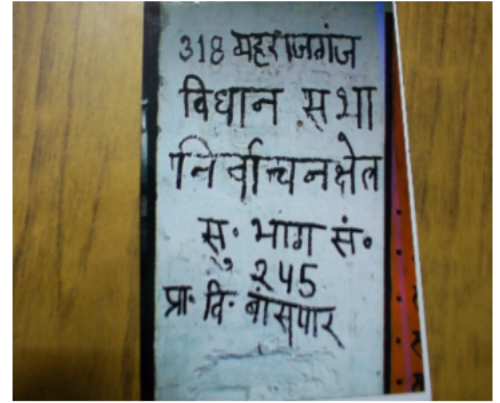 318 महराजगंज
विधान सभा
निर्वाचनक्षेत
सु॰ भाग सं॰
२45
प्रा॰ वि॰ बांसपार